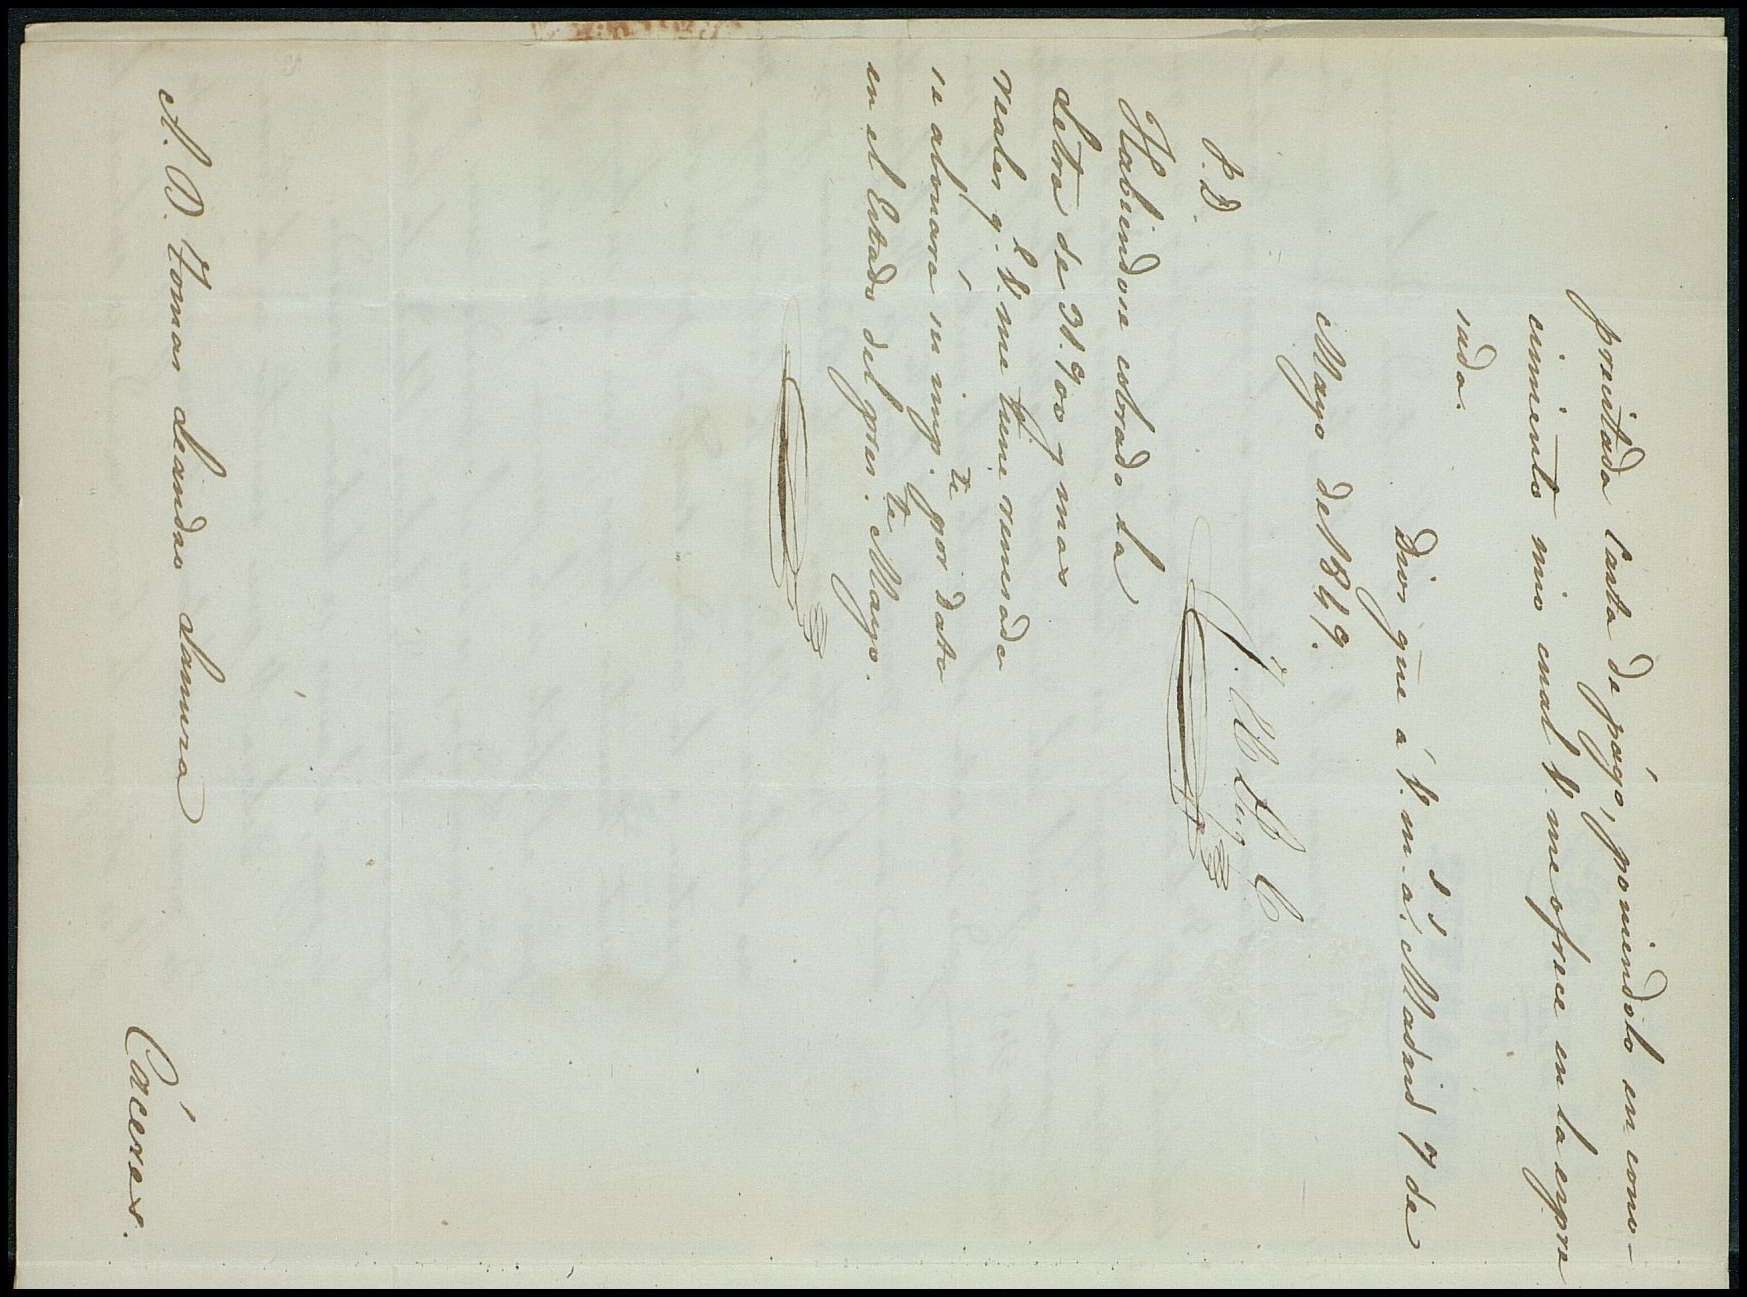 precitada Carta de págo, poniendolo en cono-
cimiento mio cual V. me ofrece en la expre
sada.
Dios gue á V. m.s a.s Madrid 7 de
Mayo de 1849.
P. D.
Habiendose cobrado la
Letra de 31.900 y mas
reales q.e V. me tiene remesada
se abonará su imp.te por Data
en el Estado del pres.te Mayo.
A. D. Tomas Leandro
Cáceres.